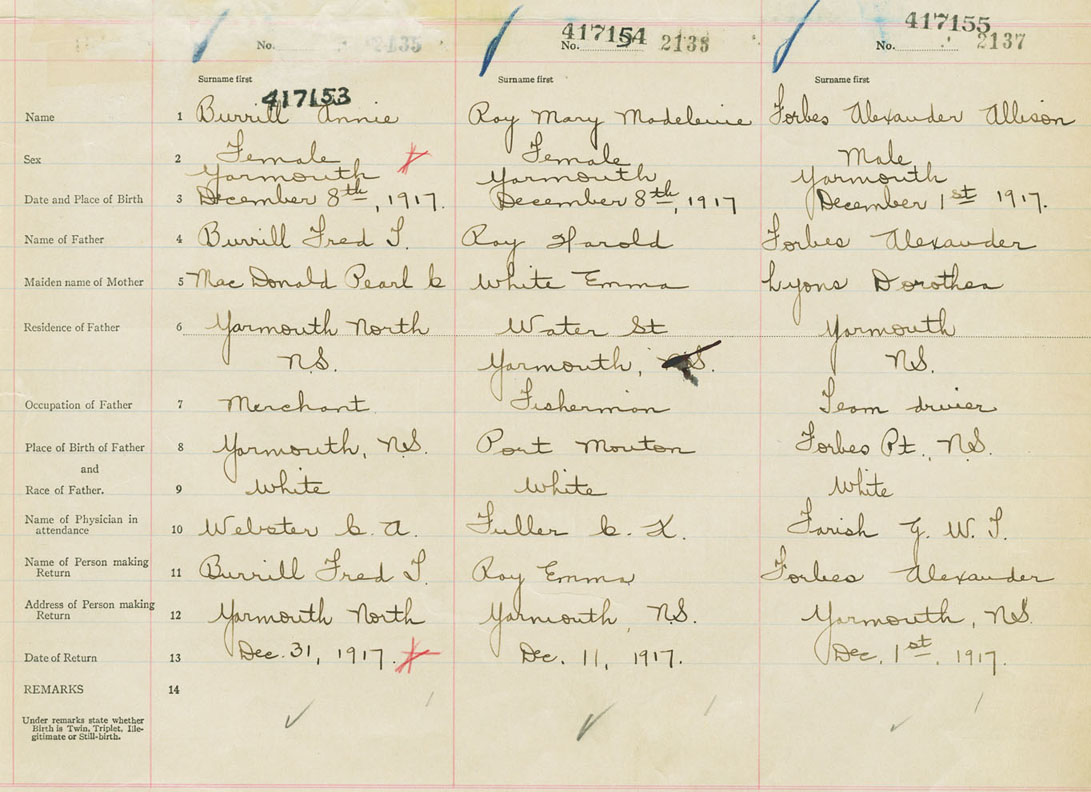 No. 2135
417154
No. 2138
417155
No. 2137
Surname first Surname first Surname first
417153
Name 1 Burrill Annie Roy Mary Madeleine Forbes Alexander Allison
Sex 2 Female Female Male
Yarmouth Yarmouth Yarmouth
Date and Place of Birth 3 December 8th, 1917. December 8th, 1917 December 1st 1917.
Name of Father 4 Burrill Fred T. Roy Harold Forbes Alexander
Maiden name of Mother 5 MacDonald Pearl C White Emma Lyons Dorothea
Residence of Father 6 Yarmouth North Water St Yarmouth
N.S. Yarmouth, N.S. N.S.
Occupation of Father 7 Merchant. Fisherman Team driver
Place of Birth of Father 8 Yarmouth, N.S. Port Mouton Forbes Pt., N.S.
and
Race of Father. 9 White White White
Name of Physician in
attendance 10 Webster C. A. Fuller C. K. Farish G. W. T.
Name of Person making
Return 11 Burrill Fred T. Roy Emma Forbes Alexander
Address of Person making
Return 12 Yarmouth North Yarmouth, N.S. Yarmouth, N.S.
Date of Return 13 Dec. 31, 1917. Dec. 11, 1917. Dec. 1st. 1917.
REMARKS 14
Under remarks state whether
Birth is Twin, Triplet, Ille-
gitimate or Still-birth.